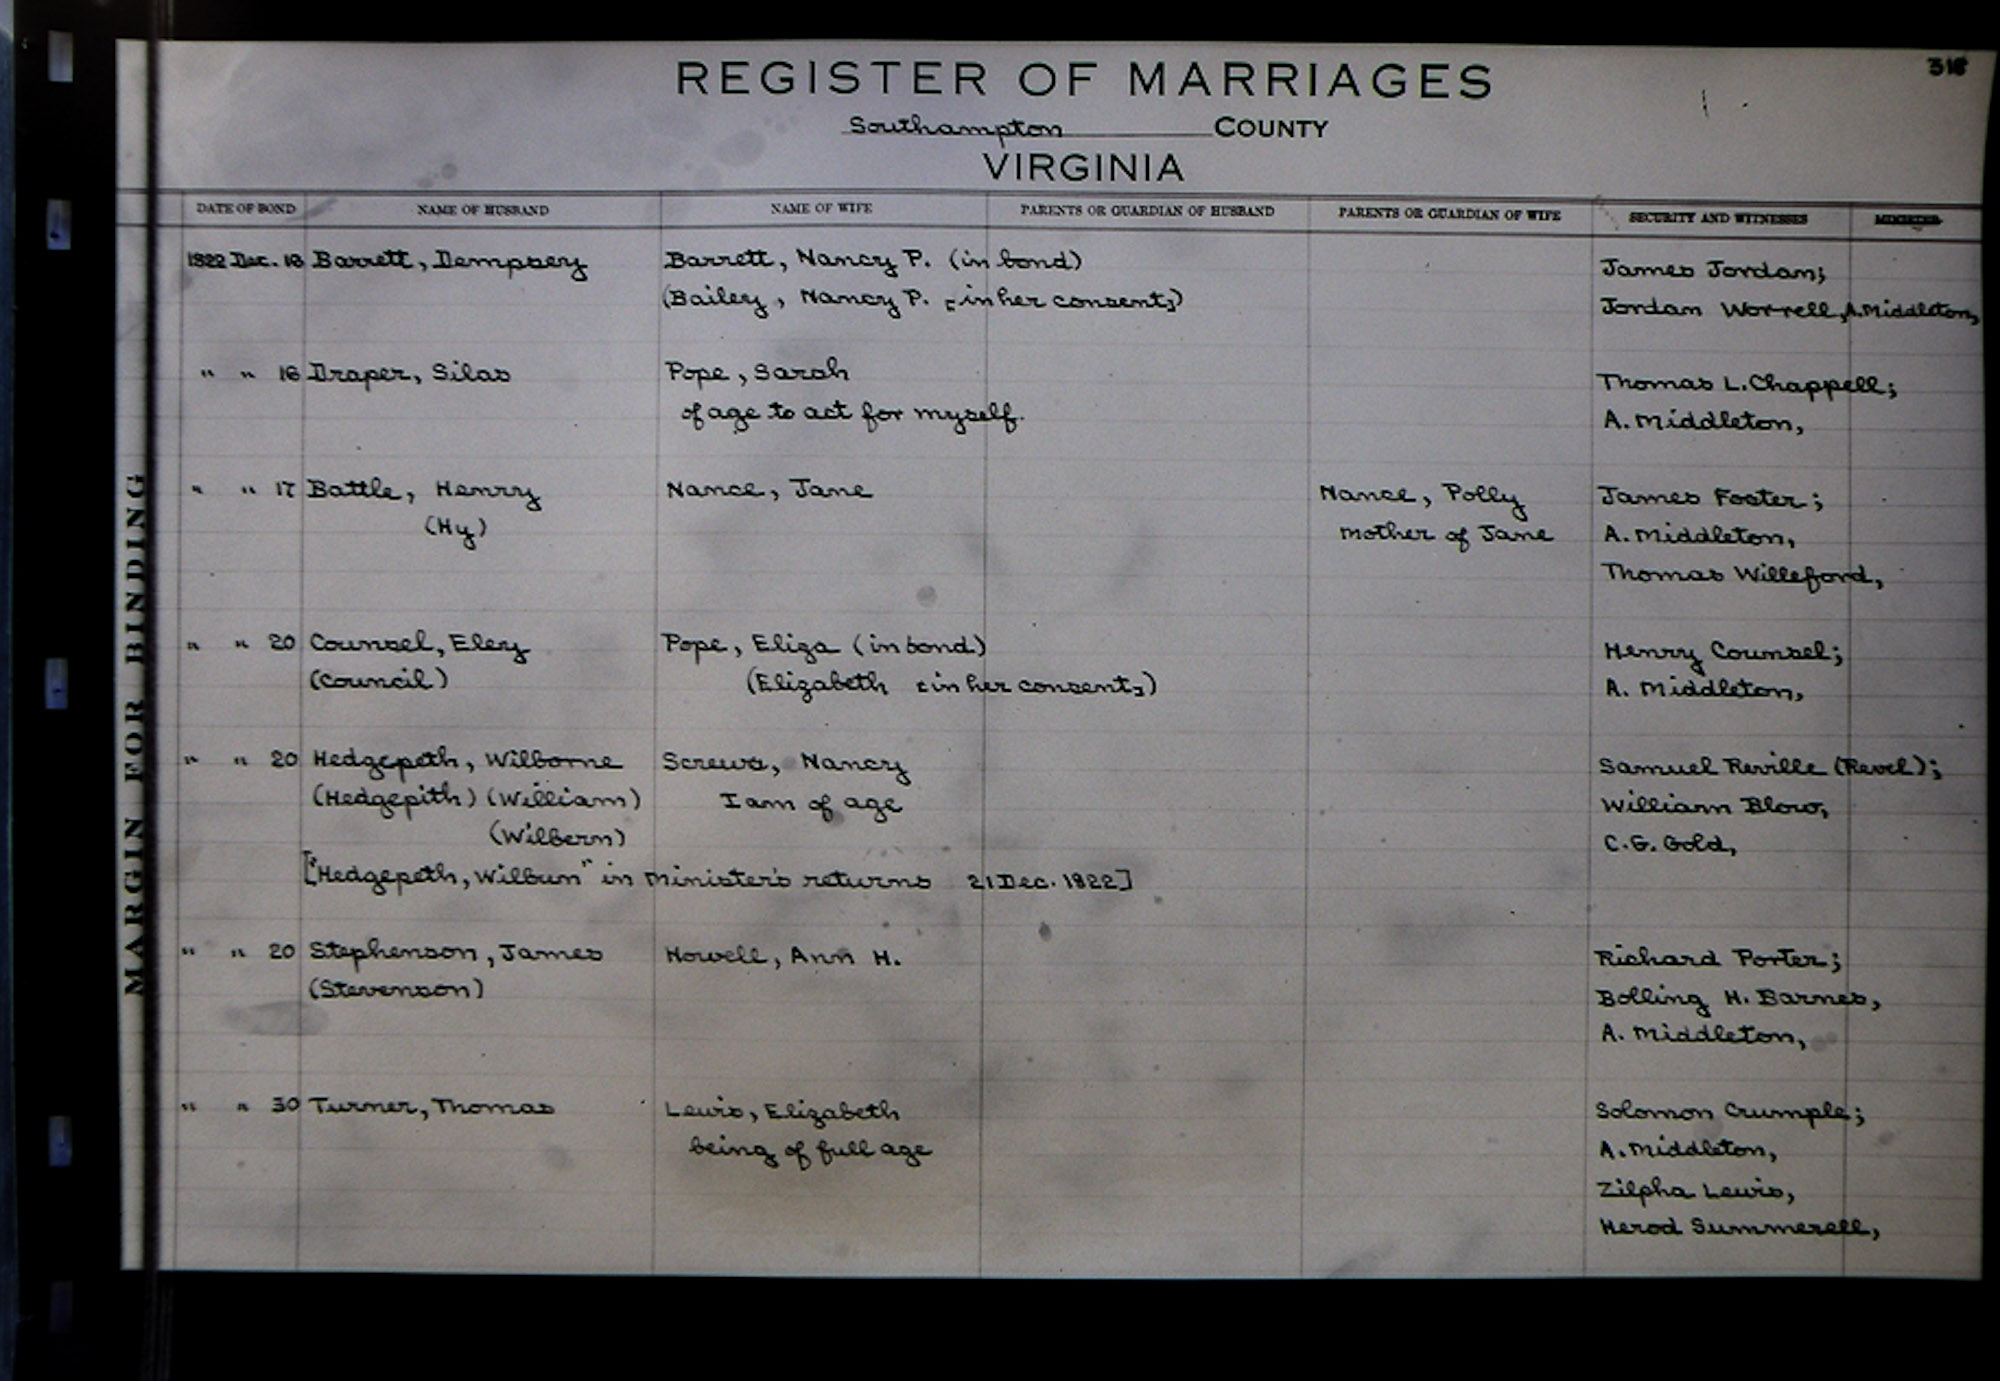 318
REGISTER OF MARRIAGES
Southampton COUNTY
VIRGINIA
DATE OF BOND NAME OF HUSBAND NAME OF WIFE PARENTS OR GUARDIAN OF HUSBAND PARENTS OR GUARDIAN OF WIFE SECURITY AND WITNESSES MINISTER
1822 Dec. 16 Barrett, Dempsey Barrett, Nancy P. (in bond) James Jordan;
(Bailey, Nancy P. [in her consent]) Jordan Worrell, A. Middleton,
" " 16 Draper, Silas Pope, Sarah Thomas L. Chappell;
of age to act for myself. A. Middleton,
" " 17 Battle, Henry Nance, Jane Nance, Polly James Foster;
(Hy) mother of Jane A. Middleton,
Thomas Willeford,
" " 20 Counsel, Eley Pope, Eliza (in bond) Henry Counsel;
(Council) (Elizabeth [in her consent]) A. Middleton,
" " 20 Hedgepeth, Wilborne Screws, Nancy Samuel Reville (Revel);
(Hedgepith) (William) I am of age William Blow,
(Wilbern) C. G. Gold,
["Hedgepeth, Wilbun" in Minister's returns 21 Dec. 1822]
" " 20 Stephenson, James Howell, Ann H. Richard Porter;
(Stevenson) Bolling H. Barnes,
A. Middleton,
" " 30 Turner, Thomas Lewis, Elizabeth Solomon Crumple;
being of full age A. Middleton,
Zilpha Lewis,
Herod Summerell,
MARGIN FOR BINDING